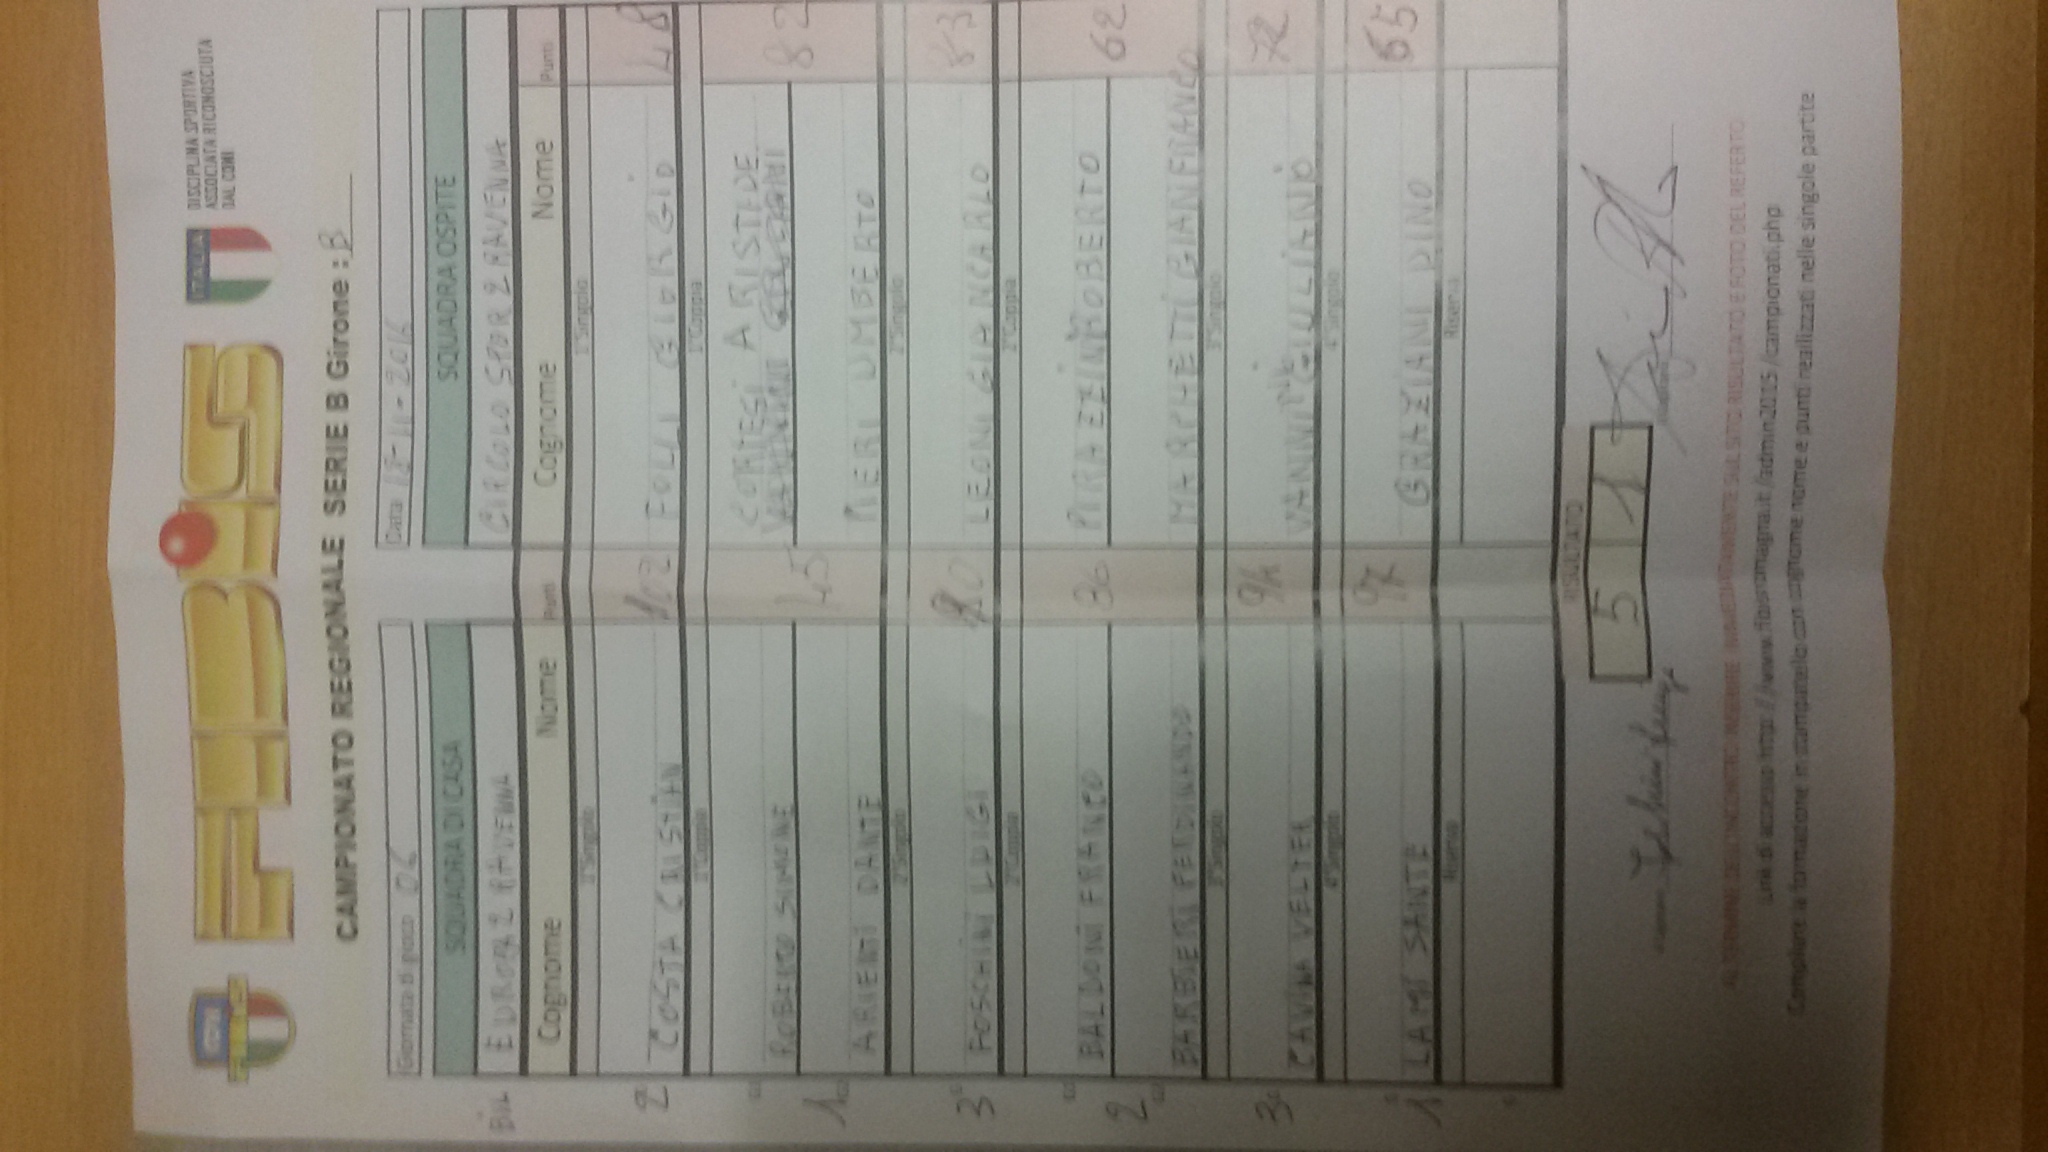 FIBiS
ITALIA
DISCIPLINA SPORTIVA
ASSOCIATA RICONOSCIUTA
DAL CONI
CAMPIONATO REGIONALE SERIE B Girone : B
Giornata di gioco 06
Data -11-2016
SQUADRA DI CASA
SQUADRA OSPITE
EUROPA 2 RAVENNA
CIRCOLO SPOR 2 RAVENNA
Cognome Nome Punti Cognome Nome Punti
1°Singolo 1°Singolo
2 COSTA CRISTIAN 102 FOLLI GIORGIO 48
1°Coppia 1°Coppia
CORTESI ARISTEDE
SIMONE 45 82
1 ARIENTI DANTE PIERI UMBERTO
2°Singolo 2°Singolo
3 FOSCHINI LUIGI 80 LEONI GIANCARLO
2°Coppia 2°Coppia
BALDONI FRANCO 36 PIRAZZINI ROBERTO 62
2 BARBIERI FERDINANDO MARCHETTI GIANFRANCO
3°Singolo 3°Singolo
3 CAVINA VELTER 94 VANNI GIULIANO 72
4°Singolo 4°Singolo
1 LAMI SANTE 97 GRAZIANI DINO 65
Riserva Riserva
RISULTATO
5 1
AL TERMINE DELL'INCONTRO INSERIRE IMMEDIATAMENTE SUL SITO RISULTATO E FOTO DEL REFERTO
Link di accesso http://www.fibisromagna.it/admin2015/campionati.php
Compilare la formazione in stampatello con cognome nome e punti realizzati nelle singole partite